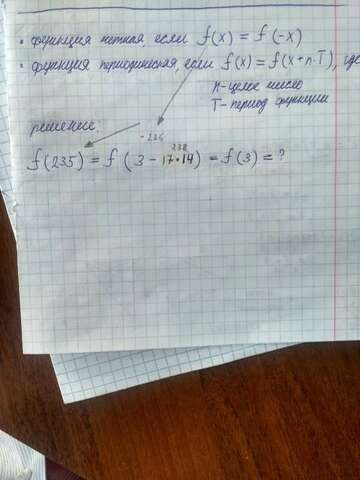 • функция четная, если f(x) = f(-x)
• функция периодическая, если f(x) = f(x+n·T), где
n-целое число
T-период функции
решение:
-235
238
f(235) = f(3-17·14) = f(3) = ?